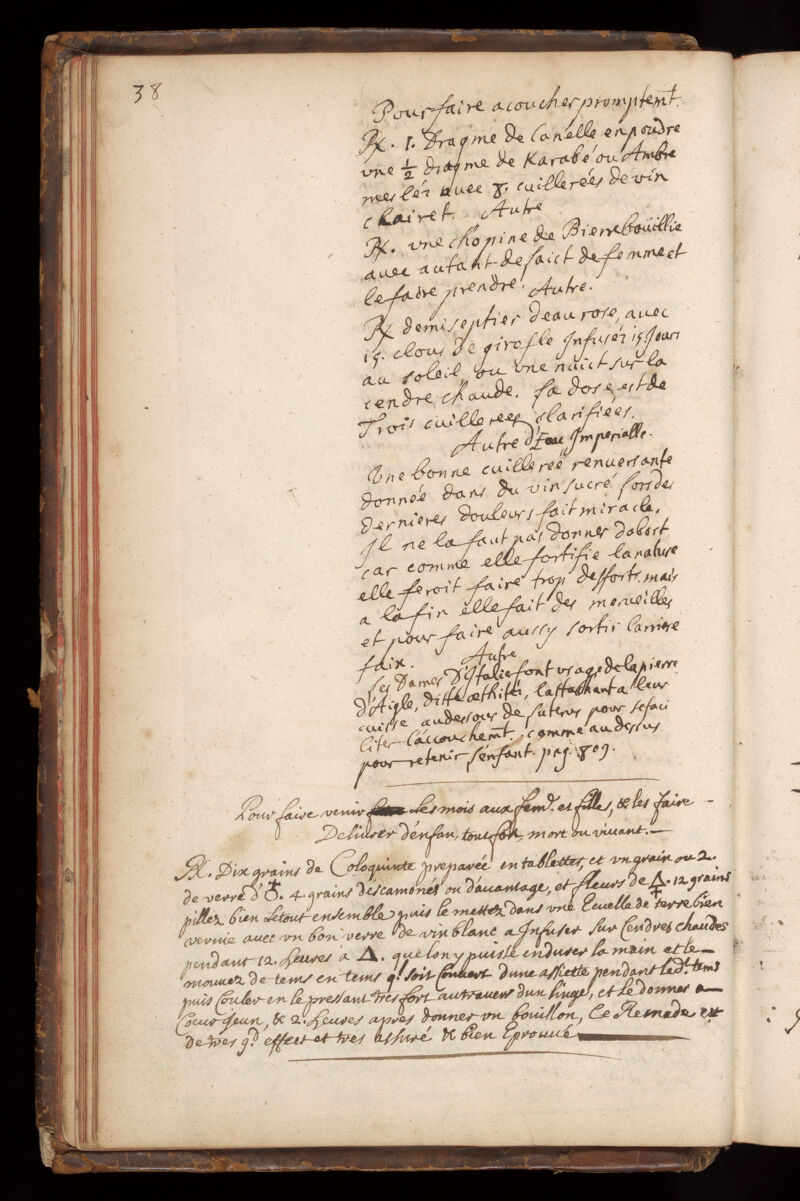 38
Pour faire acoucher promptemt.
℞. 1. Dragme de Canelle enpoudre
vne ½ dragme de Karabé ou Ambre
mesléz auec 8. cuillereés de vin
clairet. Autre
℞. vne chopine de Bierre boüillie
auec autant de laict de femme et
le faire prendre. Autre.
℞ demiseptier deau rose, auec
15. clous de girofle Infuséz 15 Jours
au soleil, ou vne nuict sur la
cendre chaude. la dose est de
Trois cuillereés clarifiées.
Autre d'Eau Imperialle.
Vne bonne cuilleréé renuersante
donnée dans du vin sucré lors des
dernieres douleurs fait miracle.
Il ne la faut pas donner dabort
car comme elle fortifie la nature
elle feroit faire trop defforts. mais
a la fin elle fait des merueilles
et pour faire aussy sortir larriere
faix. Autre
Les Dames d'Italie font vsage de la pierre
d'Aigle, ditte œthités, lattachant a leur
cuisse audessous de luterus pour lefaci
liter Laccouchemt. comme au dessus
pour retenir l'enfant. pag. 809.
Pour faire venir les mois aux fem. et filles, & les faire
Deliurer d'enfan, tout fon, mort ou viuant.
℞. Dix grains de Coloquinte preparée en tablettes, et vn grain ou 2.
de verre d'♁. 4. grains descamoneé ou dauantage, et fleurs de 🜍. 12 grains
pillez bien Letout ensemble puis le mettez dans vne Ecuelle de terre bien
vernie auec vn bon verre de vin blanc a Infuser sur Cendres chaudes
pendant 12. heures a 🜂. que lon y puisse endurer la main et le
mouuez de tems en tems q. soit Couuert dune assiette pendant led. tems
puis Couler en le pressant tres fort autrauers dun linge, et Le donner a
Coeur Jeun, & 2. heures apres donner vn bouillon, Ce Remede est
de tres gd. effect et tres assuré & bien Eprouué